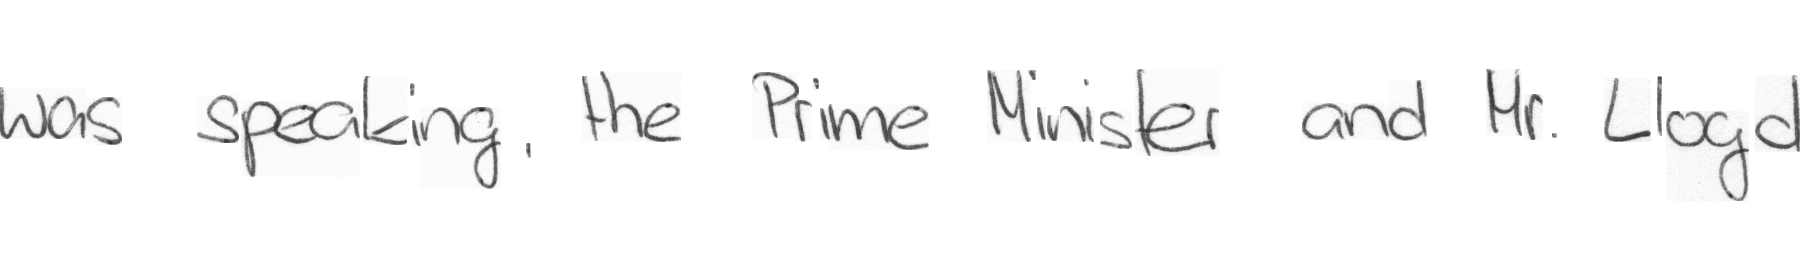 was speaking, the Prime Minister and Mr. Lloyd